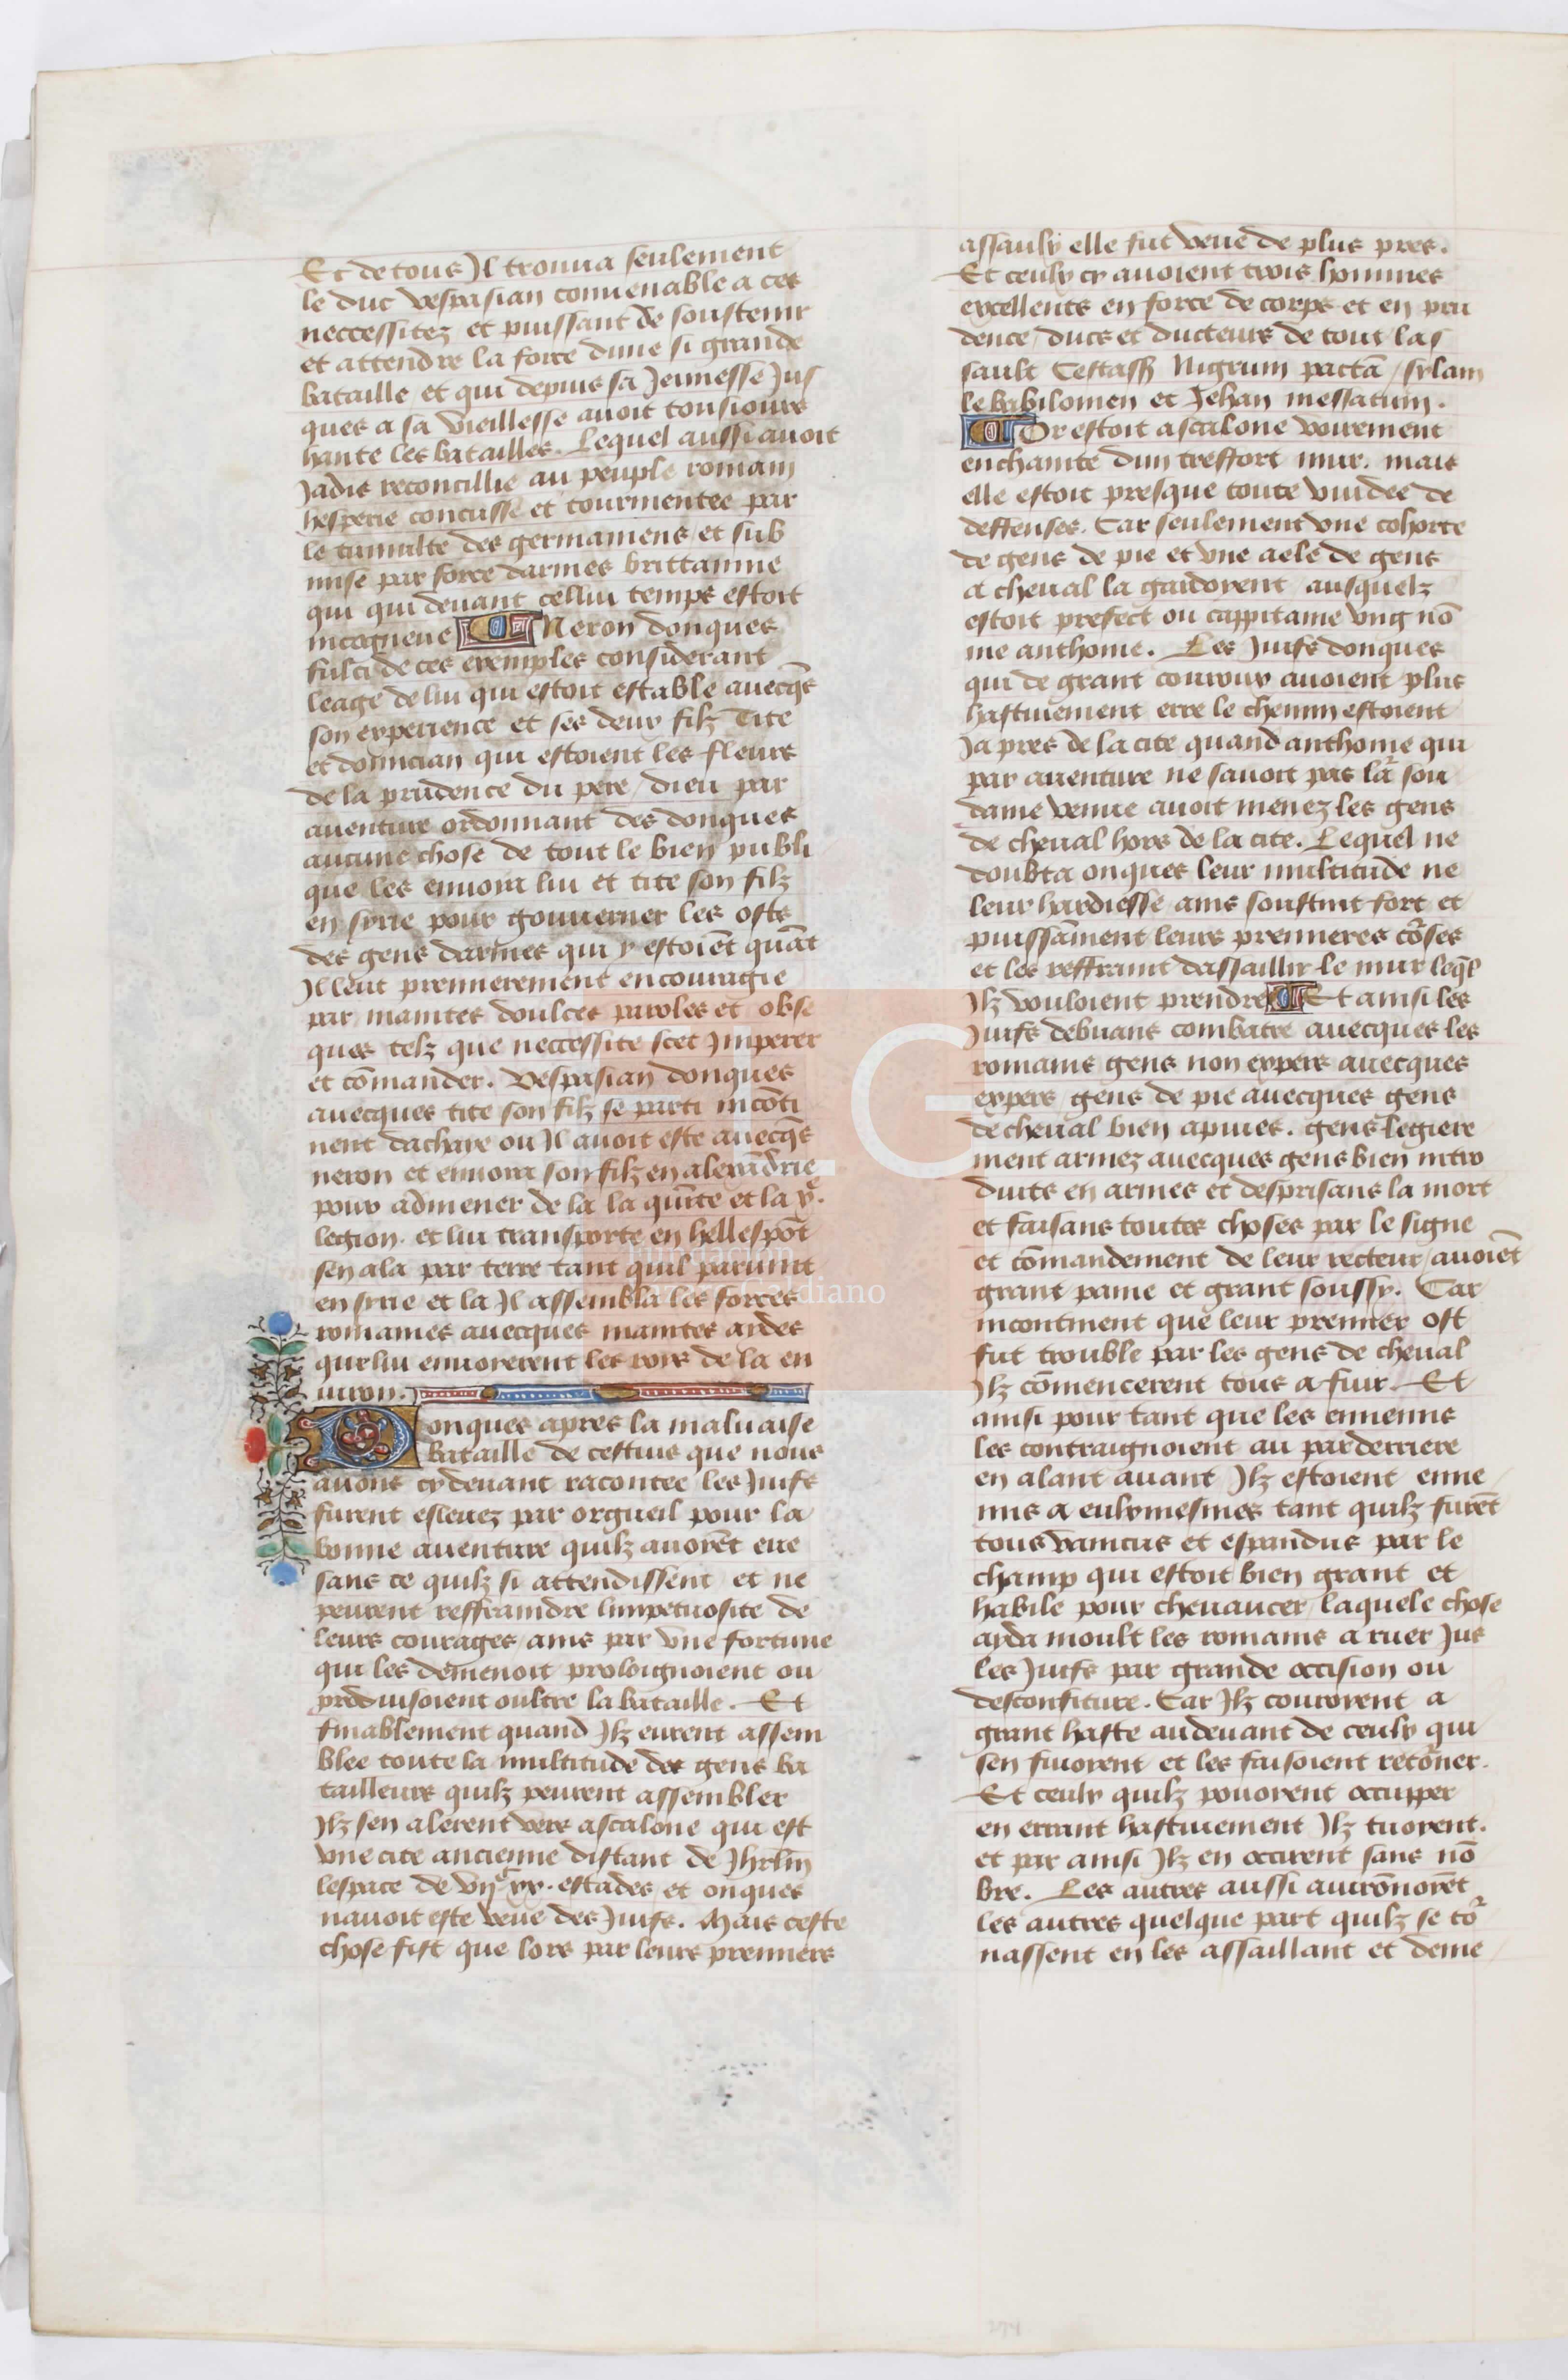 Et de tous Il trouua seulement
le duc vespasian conuenable a ces
neccessitez et puissant de soustenir
et attendre la force dune si grande
bataille et qui depuis sa Jeunesse Jus
ques a sa vieillesse auoit tousiours
hante les batailles. Lequel aussi auoit
Jadis reconcillie au peuple romain
hesperie concusse et tourmentee par
le tumulte des germaniens et sub
mise par force darmes brittannie
qui qui deuant cellui temps estoit
incogneue Neron donques
fulci de ces exemples considerant
leage de lui qui estoit estable auecqs̄
son experience et ses deux filz Tite
et domician qui estoient les fleurs
de la prudence du pere / dieu par
auenture ordonnant des donques
aucune chose de tout le bien publi
que les enuoia lui et tite son filz
en syrie pour gouuerner les osts
des gens darmes qui y estoiēt quāt
Il leut premierement encouragie
par maintes doulces paroles et obse
ques telz que neccessite scet Imperer
et cōmander. Vespasian donques
auecques tite son filz se parti incōti
nent dachaye ou Il auoit este auecqs̄
neron et enuoia son filz en alexādrie
pour admener de la la quīte et la xͤ.
legion. et lui transporte en hellespōt
sen ala par terre tant quil paruint
en sirie et la Il assembla les forces
romaines auecques maintes aydes
que lui enuoierent les rois de la en
uiron.
Donques apres la maluaise
bataille de cestius que nous
auons cy deuant racontee les Juifs
furent esleuez par orgueil pour la
bonne auenture quilz auoiēt eue
sans ce quilz si attendissent et ne
peurent reffraindre limpetuosite de
leurs courages / ains par vne fortune
qui les demenoit prolongnoient ou
produisoient oultre la bataille. Et
finablement quand Ilz eurent assem
blee toute la multitude des gens ba
tailleurs quilz peurent assembler
Ilz sen alerent vers ascalone qui est
vne cite ancienne distant de Jhrlm̄
lespace de vijͨ xx. estades et onques
nauoit este veue des Juifs. Mais ceste
chose fist que lors par leurs premiers
assaulx elle fut veue de plus pres.
Et ceulx cy auoient trois hommes
excellents en force de corps et en pru
dence / ducs et ducteurs de tout las
sault Cestass Nigrum pactā / sylam
le babilonien et Jehan messatum.
Or estoit ascalone voirement
enchainte dun tresfort mur. mais
elle estoit presque toute vuidee de
deffenses. Car seulement vne cohorte
de gens de pie et vne aele de gens
a cheual la gardoient ausquelz
estoit prefect ou cappitaine vng nō
me anthoine. Les Juifs donques
qui de grant couroux auoient plus
hastiuement erre le chemin estoient
Ja pres de la cite quand anthoine qui
par auenture ne sauoit pas la sou
daine venue auoit menez les gens
de cheual hors de la cite. Lequel ne
doubta onques leur multitude ne
leur hardiesse ains soustint fort et
puissāment leurs premieres cōrses
et les reffraint dassaillir le mur leq̄l
Ilz vouloient prendre Et ainsi les
Juifs debuans combatre auecques les
romains gens non expers auecques
expers / gens de pie auecques gens
de cheual bien apuies. gens legiere
ment armez auecques gens bien intro
duits en armes et desprisans la mort
et faisans toutes choses par le signe
et cōmandement de leur recteur / auoiēt
grant paine et grant soussy. Car
incontinent que leur premier ost
fut trouble par les gens de cheual
Ilz cōmencerent tous a fuir. Et
ainsi pour tant que les ennemis
les contraignoient au par derriere
en alant auant Ilz estoient enne
mis a eulx mesmes tant quilz furēt
tous vaincus et espandus par le
champ qui estoit bien grant et
habile pour cheuaucer / laquele chose
ayda moult les romains a ruer Jus
les Juifs par grande occision ou
desconfiture. Car Ilz couroient a
grant haste au deuant de ceulx qui
sen fuioient et les faisoient retōner.
Et ceulx quilz pouoient occupper
en errant hastiuement Ilz tuoient.
et par ainsi Ilz en occirent sans nō
bre. Les autres aussi auirōnoiēt
les autres quelque part quilz se tō
nassent en les assaillant et deme
LG
Fundación
Galdiano